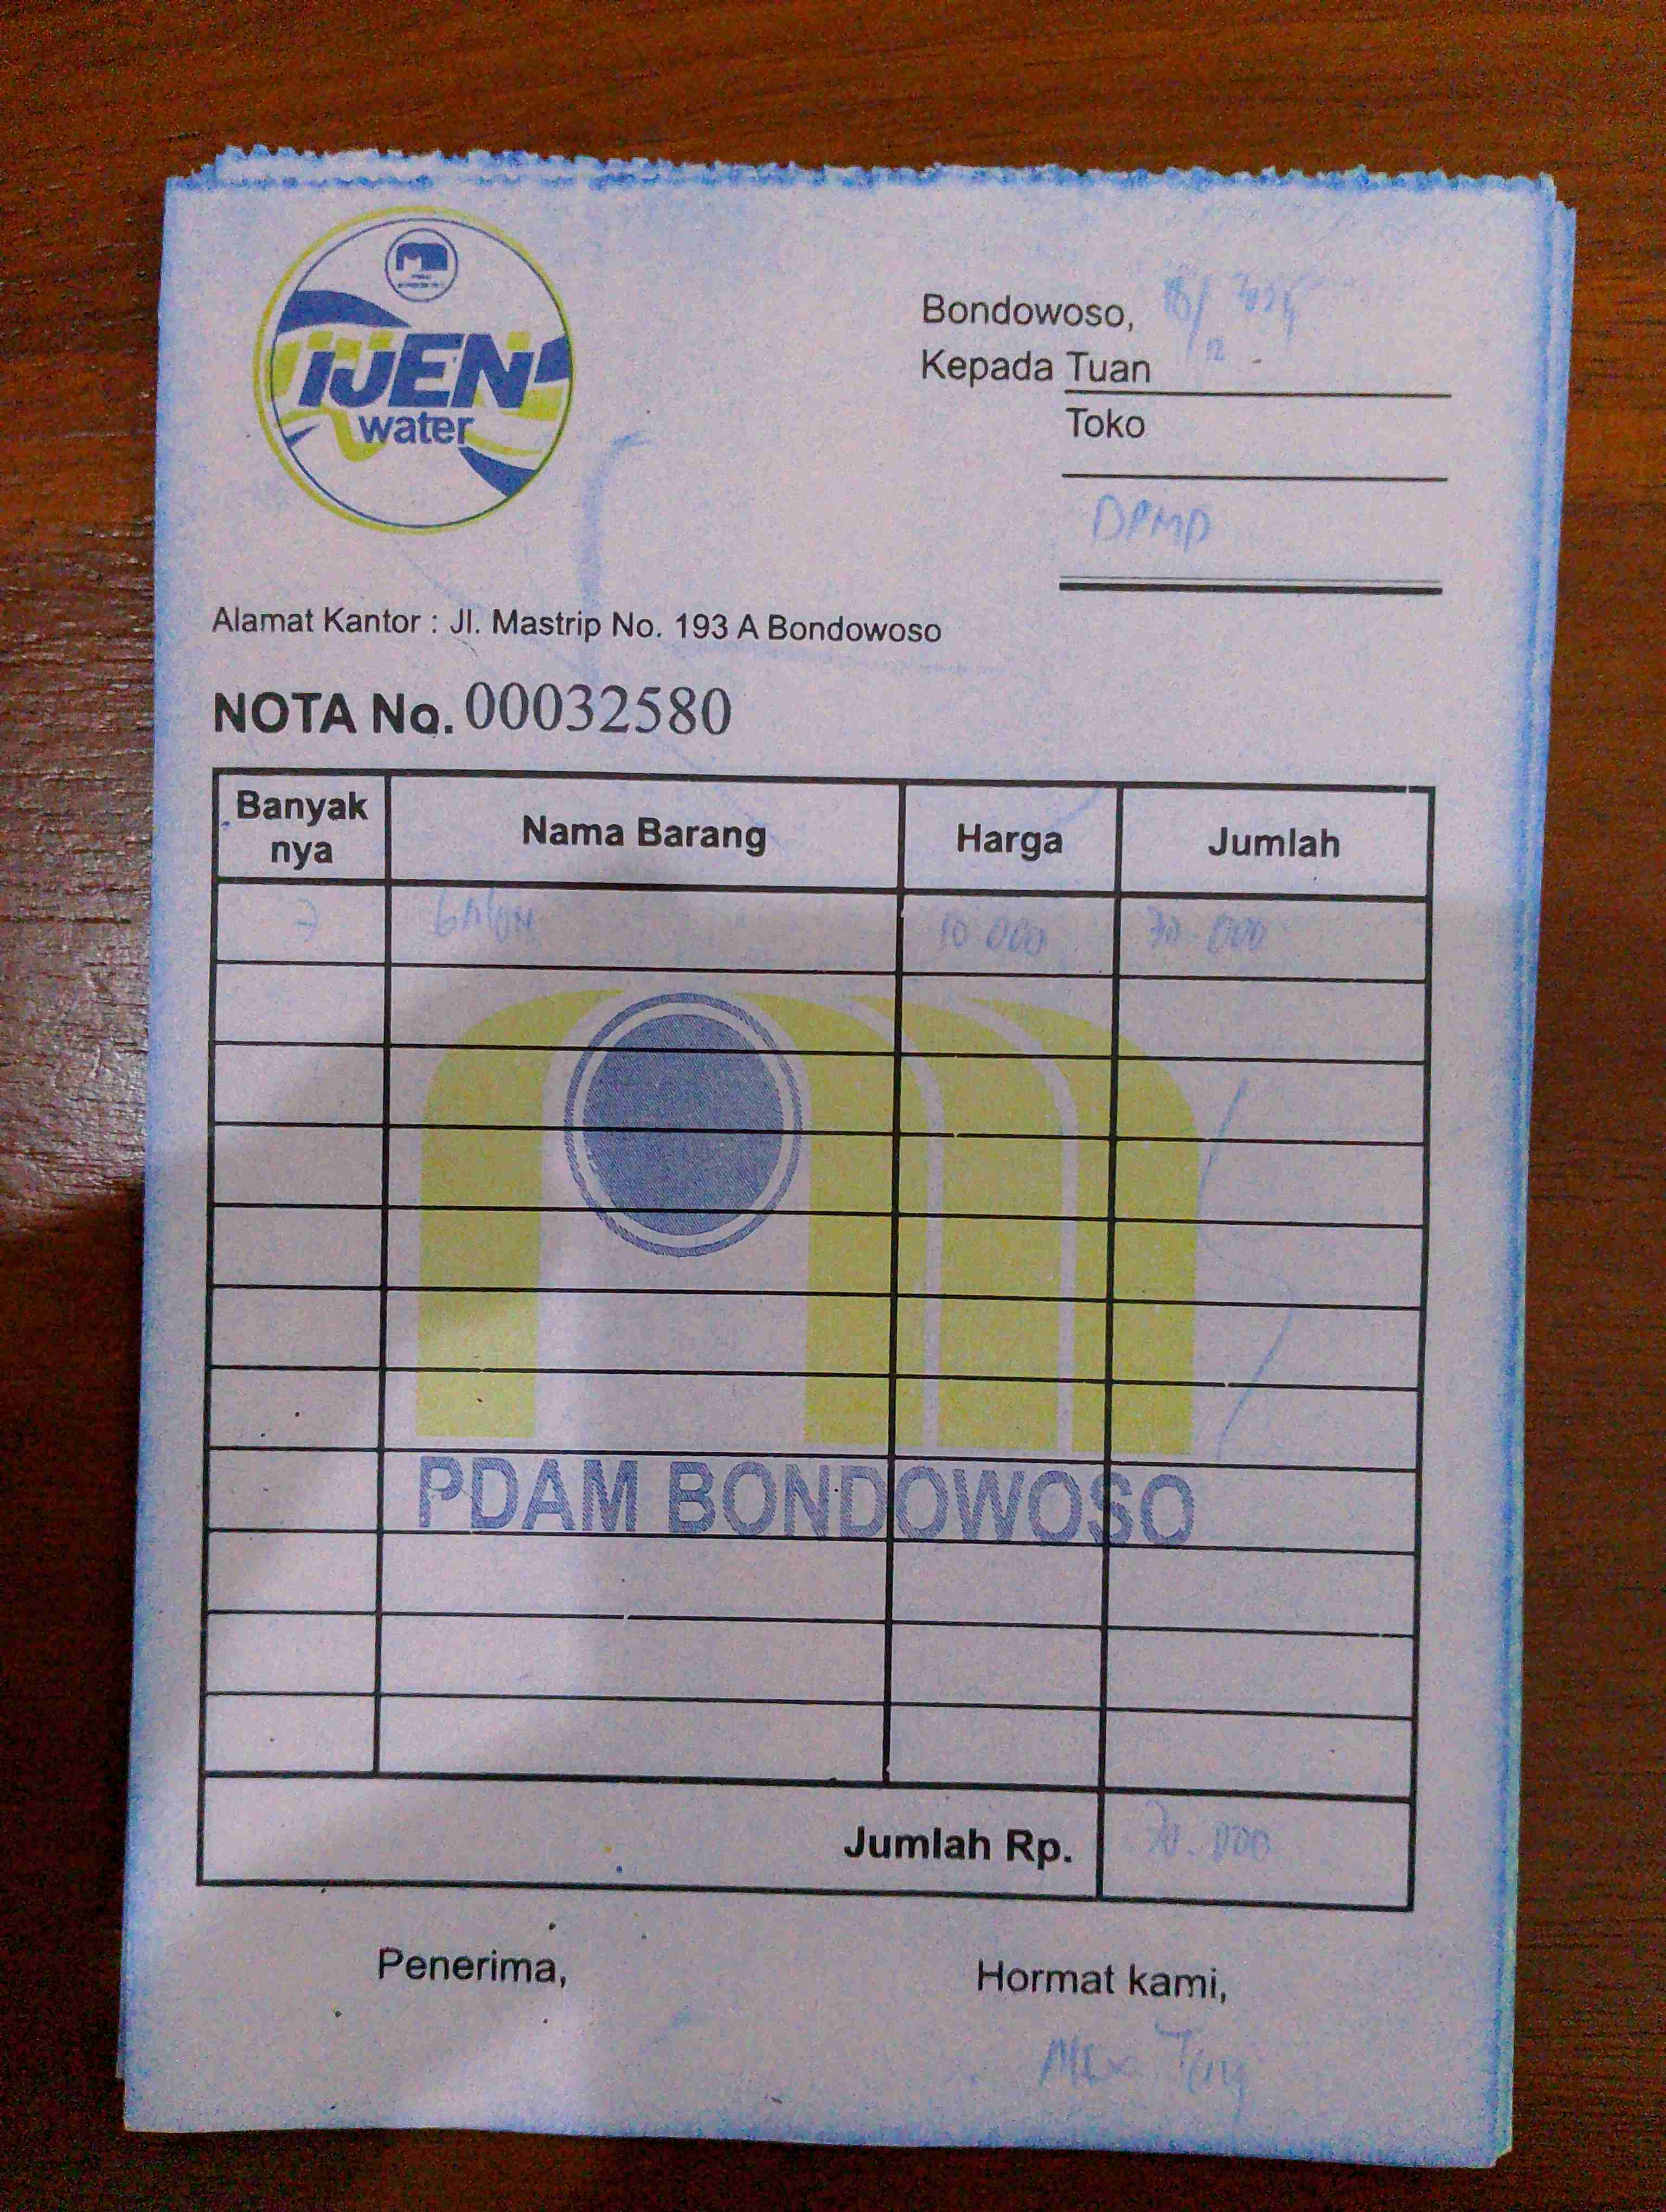 IJEN
water
Bondowoso,
Kepada Tuan
Toko
DPMD
Alamat Kantor : Jl. Mastrip No. 193 A Bondowoso
NOTA No. 00032580
Banyak nya Nama Barang Harga Jumlah
7 GALON 10.000 70.000
PDAM BONDOWOSO
Jumlah Rp. 70.000
Penerima, Hormat kami,